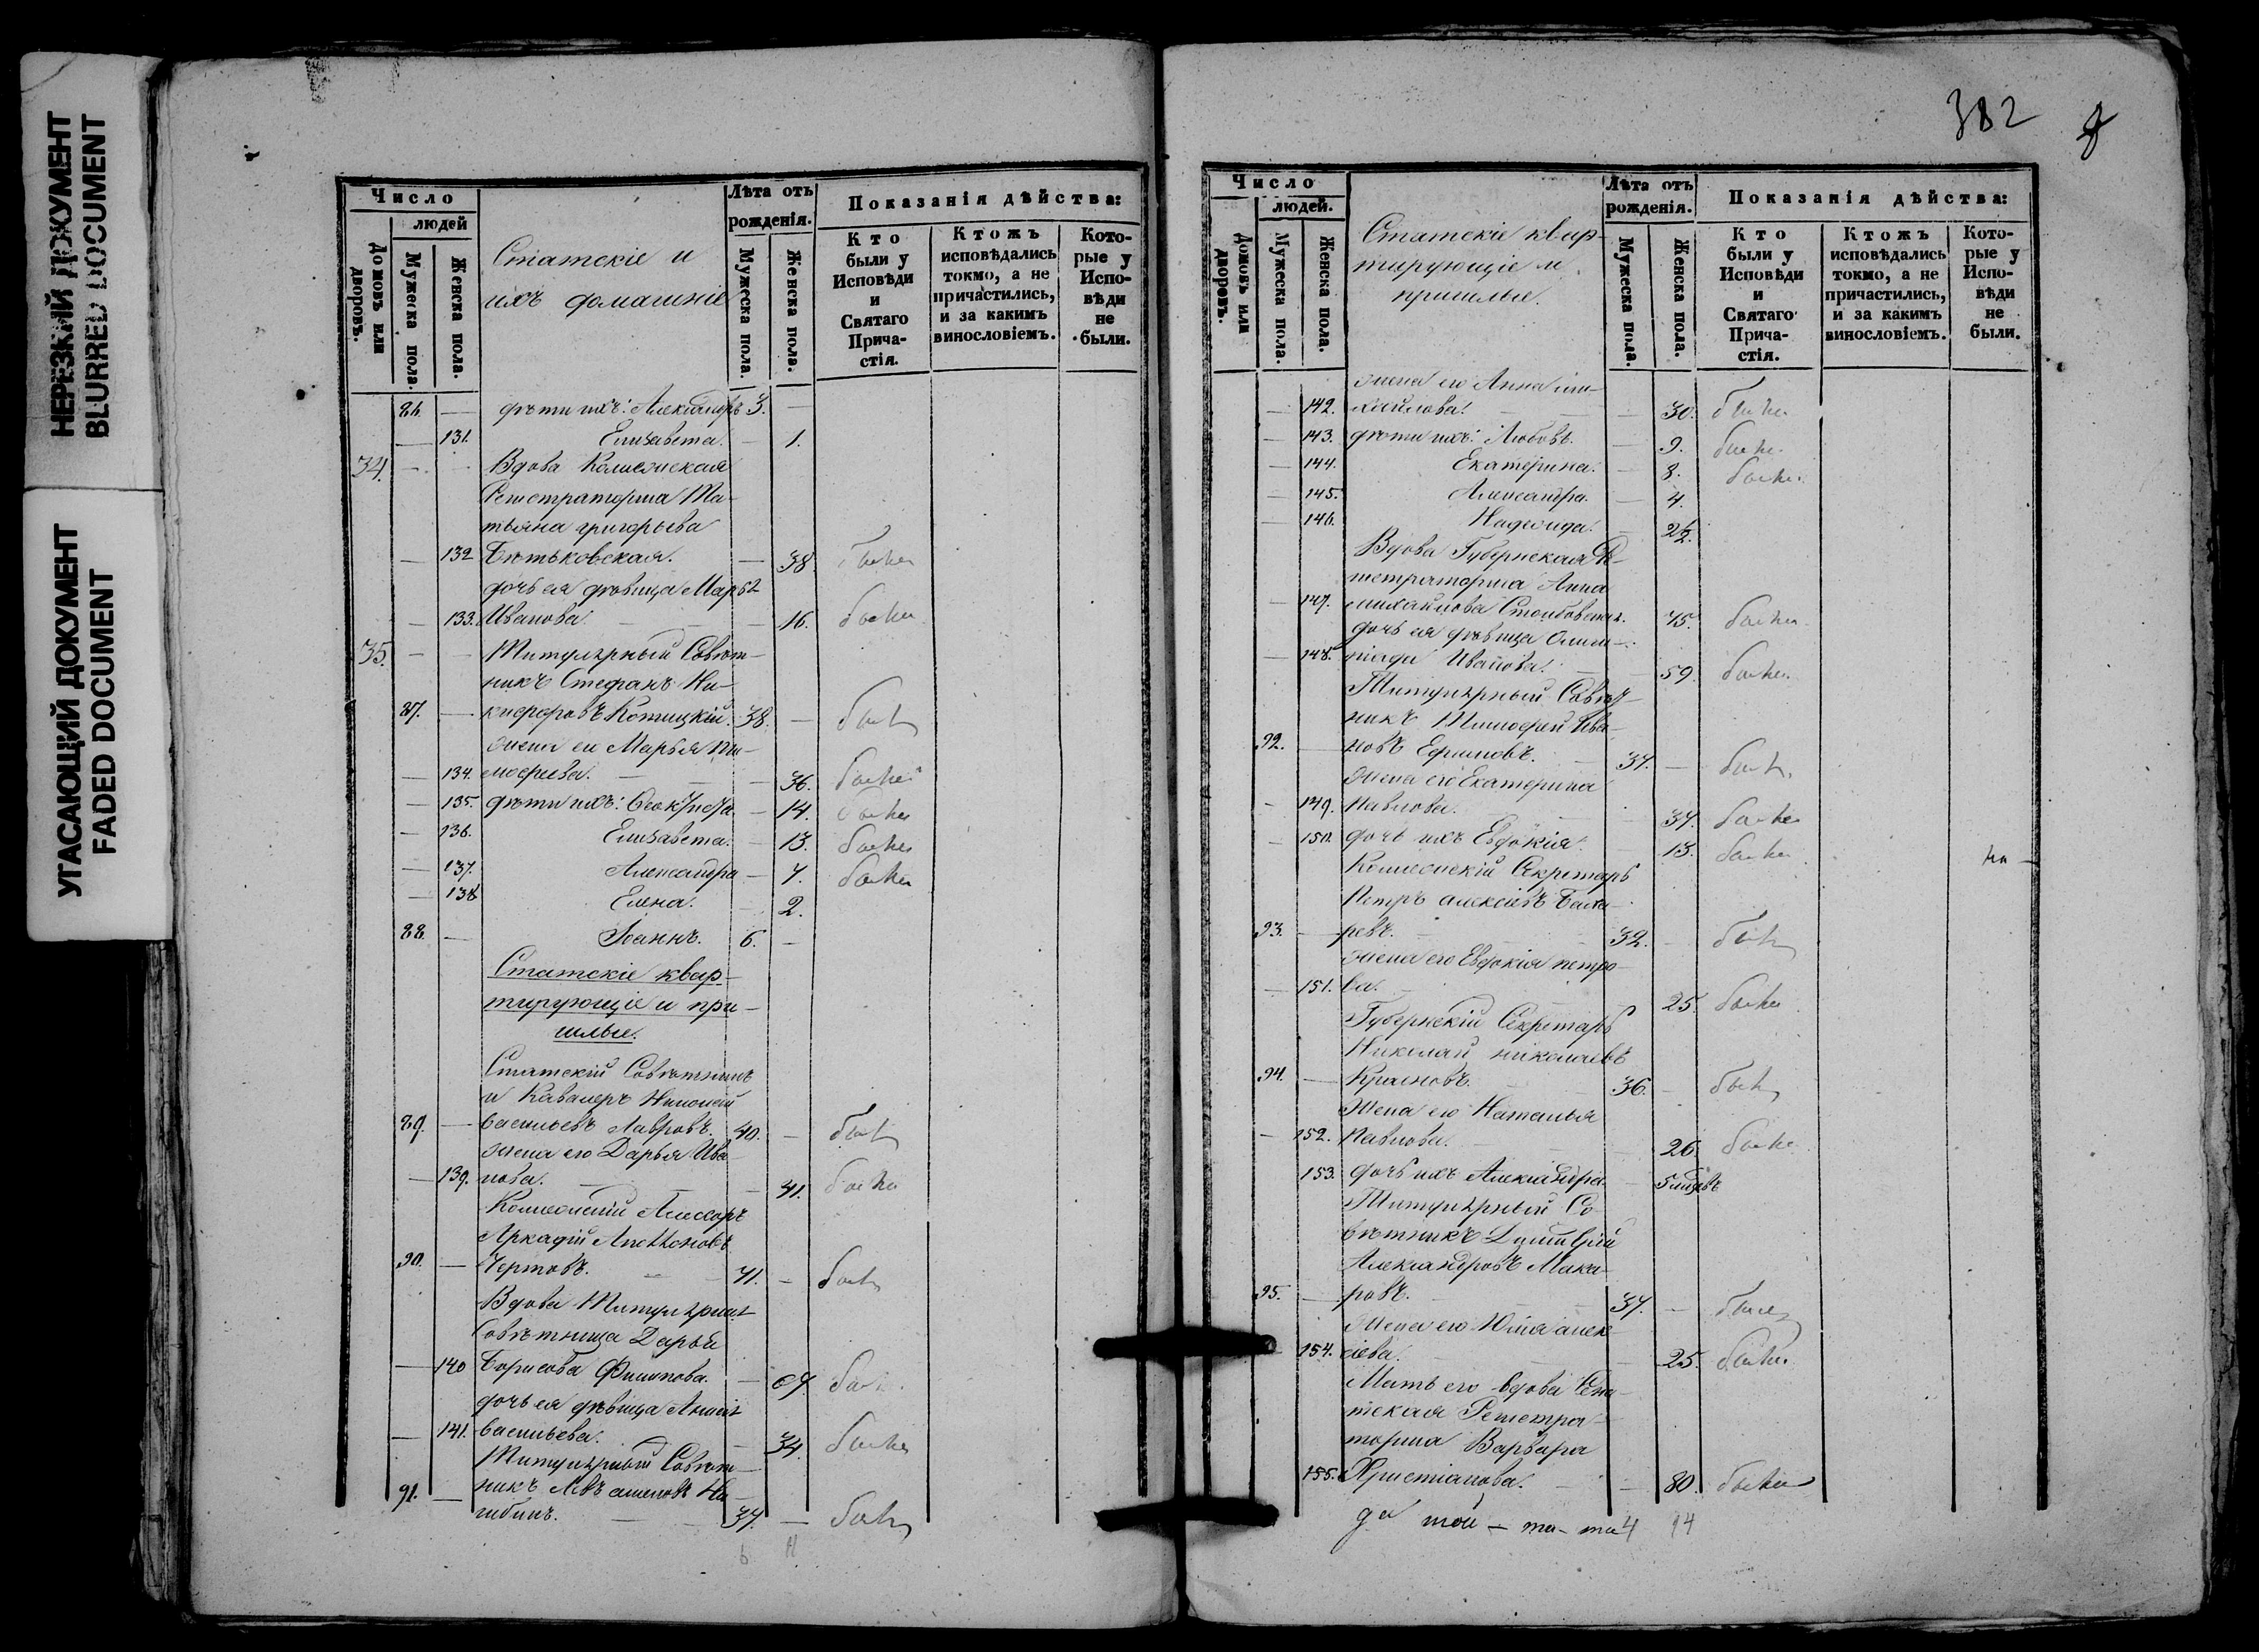 НЕРЕЗКИЙ ДОКУМЕНТ
BLURRED DOCUMENT
УГАСАЮЩИЙ ДОКУМЕНТ
FADED DOCUMENT
Число
людей
Домовъ или дворовъ.
Мужеска пола.
Женска пола.
Статскіе и
ихъ домашніе
Лѣта отъ рожденія.
Мужеска пола.
Женска пола.
Показанія дѣйства:
Кто были у Исповѣди и Святаго Причастія.
Ктожъ исповѣдались токмо, а не причастились, и за какимъ винословіемъ.
Которые у Исповѣди не были.
86. — дѣти ихъ: Александръ 3. —
— 131. Елисавета. — 1.
34. — — Вдова Коллежская
Регистраторша Та-
тьяна григорьева
— 132 Бѣтьковская. — 38. была
дочь ея дѣвица Марья
— 133. Иванова. — 16. была
35. — — Титулярный Совѣт-
никъ Стефанъ Ни-
87. — кифоровъ Котицкій. 38. — былъ
жена ея Марья Ти-
— 134. мофиева. — 36. была
— 135. дѣти ихъ: Феоктиста — 14. была
— 136. Елисавета. — 13. была
— 137. Александра — 7. была
— 138 Елена. — 2.
88. — Іоаннъ. 6. —
Статскіе квар-
тирующіе и при-
шлые.
Статскій Совѣтникъ
и Кавалеръ Николай
89. — васильевъ Лавровъ. 40. — былъ
жена его Дарья Ива-
— 139. нова. — 41. была
Коллежскій Ассесоръ
Аркадій
90. — Чертовъ. — 41. — былъ
Вдова Титулярная
Совѣтница Дарья
— 140 Борисова Филипова. — 67 была
дочь ея дѣвица
— 141. васильева. — 34. была
Титулярный Совѣт-
91. — никъ
— 37. — былъ
6 11
382
8
Число
людей.
Домовъ или дворовъ.
Мужеска пола.
Женска пола.
Статскіе квар-
тирующіе и
пришлые.
Лѣта отъ рожденія.
Мужеска пола.
Женска пола.
Показанія дѣйства:
Кто были у Исповѣди и Святаго Причастія.
Ктожъ исповѣдались токмо, а не причастились, и за какимъ винословіемъ.
Которые у Исповѣди не были.
жена его Анна ми-
— 142. хайлова. — 30. была
— 143. дѣти ихъ: Любовь. — 9. была
— 144. Екатерина. — 8. была
— 145. Александра. — 4.
— 146. Надежда. — 2½.
Вдова Губернская Ре-
гистраторша Анна
— 147. михайлова 75. была
дочь ея дѣвица Олим-
— 148. піада Иванова. — 59. была
Титулярный Совѣт-
никъ Тимофей Ива-
92. — новъ Ефимовъ. 37. — былъ
жена его Екатерина
— 149. павлова. 37. была
— 150. дочь ихъ Евдокія. 13. была
Коллежскій Секретарь
Петръ алексѣевъ
93. — ревъ. — 32. — былъ
жена его Евдокія петро-
— 151. ва. — 25. была
Губернскій Секретарь
Николай николаевъ
94. — Красновъ. 36. — былъ
Жена его Наталья
— 152. павлова. 26. была
153. дочь ихъ Александра — 5 мцевъ
Титулярный Со-
вѣтникъ Димитрій
Александровъ Мака-
95. — ровъ. — 37. — былъ
Жена его Юлія алек-
154. сіева. — 25. была
Мать его вдова Сена-
тская Регистра-
торша Варвара
155. Христіанова. — 80. была
4 14